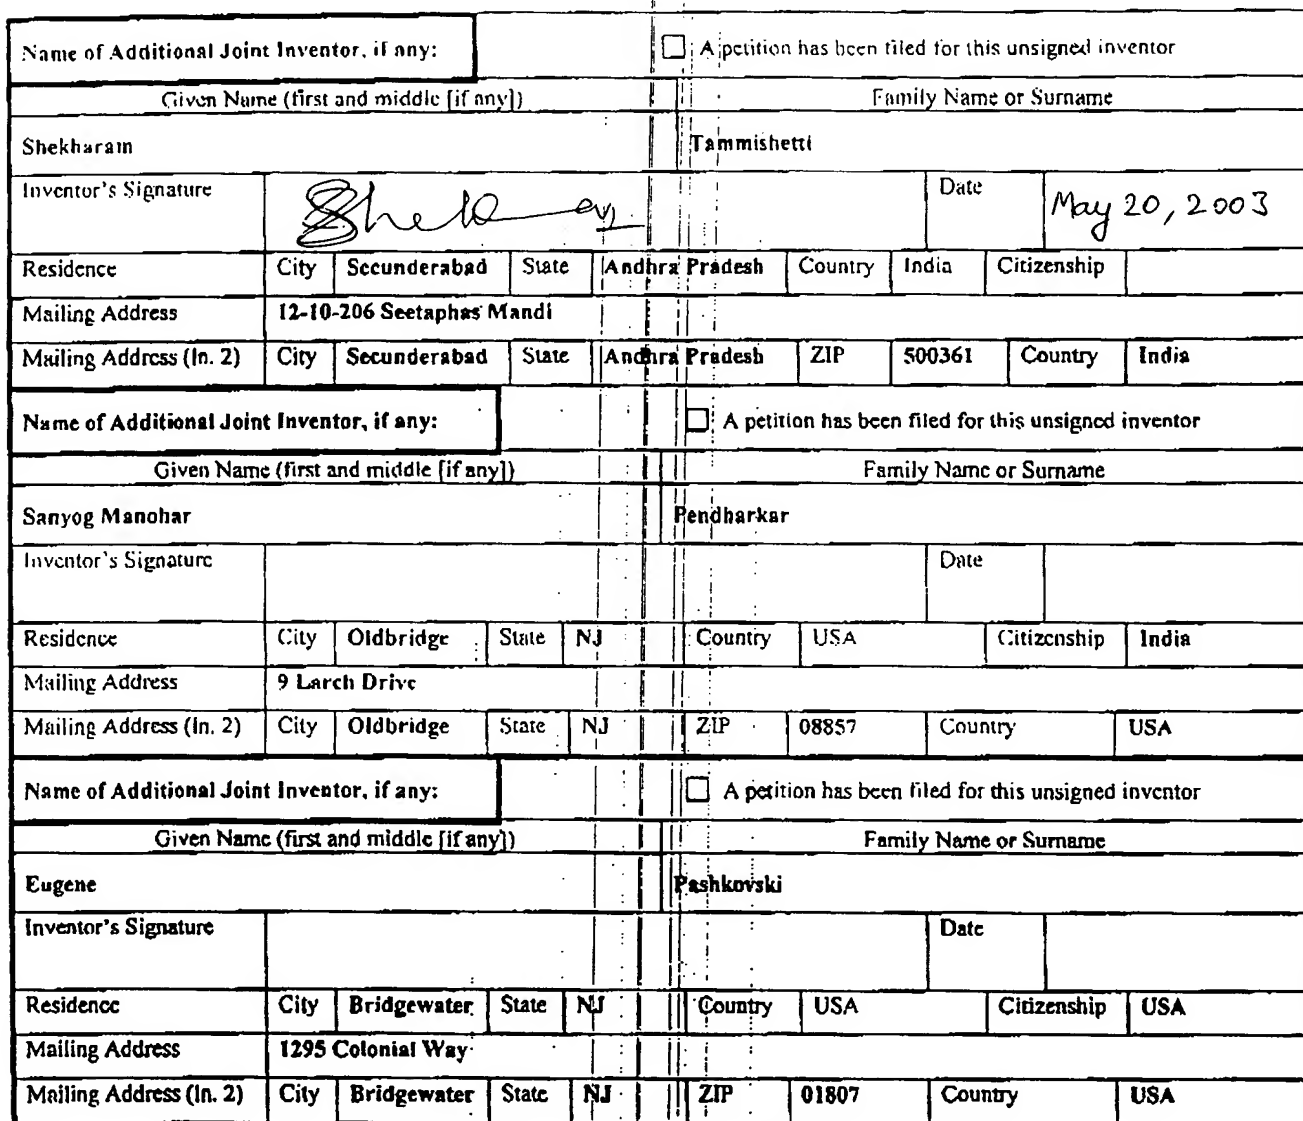 Name of Additional Joint Inventor, if any: A petition has been filed for this unsigned inventor
Given Name (first and middle [if any]) Family Name or Surname
Shekharam Tammishetti
Inventor's Signature Date May 20, 2003
Residence City Secunderabad State Andhra Pradesh Country India Citizenship
Mailing Address 12-10-206 Seetaphas Mandi
Mailing Address (ln. 2) City Secunderabad State Andhra Pradesh ZIP 500361 Country India
Name of Additional Joint Inventor, if any: A petition has been filed for this unsigned inventor
Given Name (first and middle [if any]) Family Name or Surname
Sanyog Manohar Pendharkar
Inventor's Signature Date
Residence City Oldbridge State NJ Country USA Citizenship India
Mailing Address 9 Larch Drive
Mailing Address (ln. 2) City Oldbridge State NJ ZIP 08857 Country USA
Name of Additional Joint Inventor, if any: A petition has been filed for this unsigned inventor
Given Name (first and middle [if any]) Family Name or Surname
Eugene Pashkovski
Inventor's Signature Date
Residence City Bridgewater State NJ Country USA Citizenship USA
Mailing Address 1295 Colonial Way
Mailing Address (ln. 2) City Bridgewater State NJ ZIP 01807 Country USA